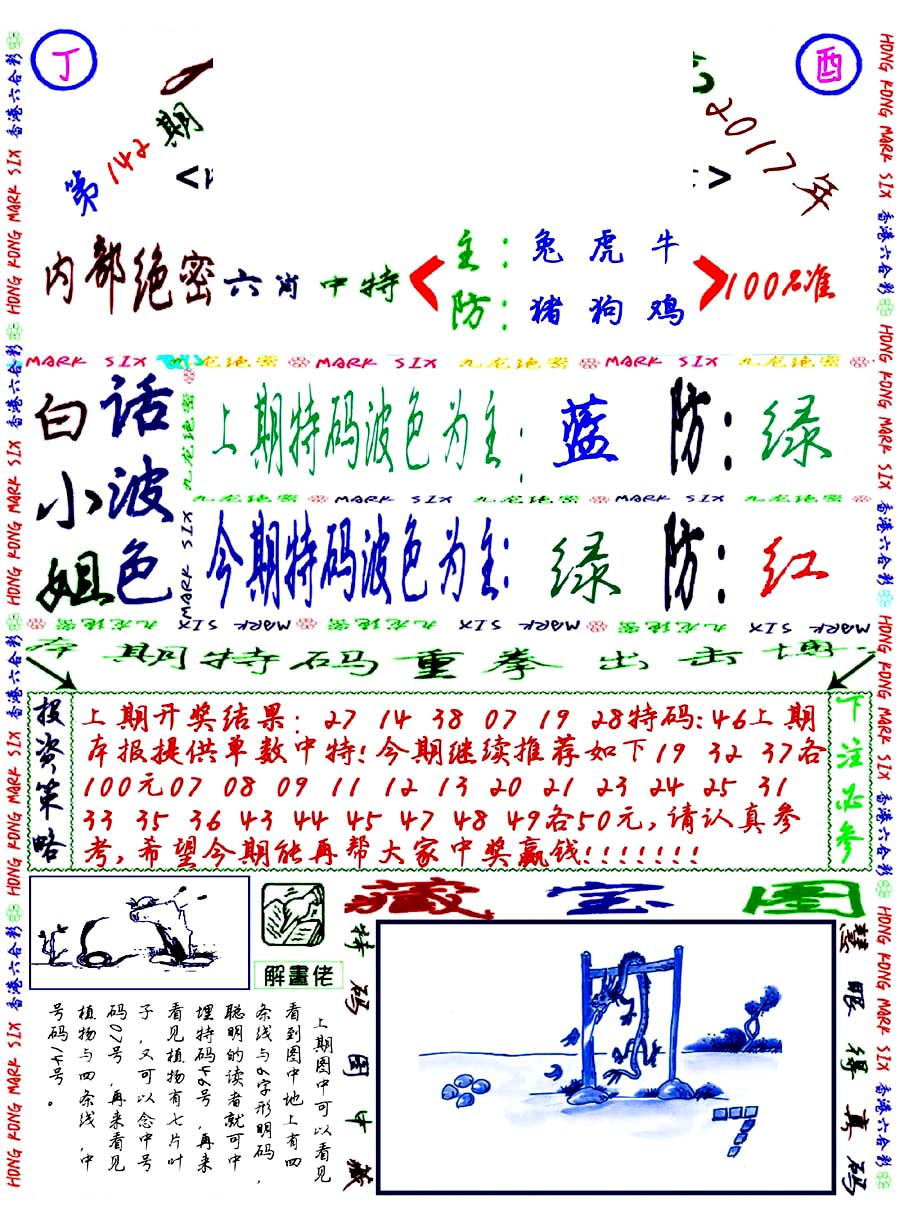 丁
酉
第142期
2017年
内部绝密六肖中特
主：兔虎牛
防：猪狗鸡
100%准
MARK SIX 九龙绝密 MARK SIX 九龙绝密 MARK SIX 九龙绝密
白话
小波
姐色
上期特码波色为主：蓝 防：绿
九龙绝密 MARK SIX 九龙绝密 MARK SIX 九龙绝密
今期特码波色为主：绿 防：红
九龙绝密 MARK SIX 九龙绝密 MARK SIX 九龙绝密 MARK SIX
本期特码重拳出击博
投资策略
上期开奖结果：27 14 38 07 19 28特码:46上期
本报提供单数中特!今期继续推荐如下19 32 37各
100元07 08 09 11 12 13 20 21 23 24 25 31
33 35 36 43 44 45 47 48 49各50元,请认真参
考,希望今期能再帮大家中奖赢钱!!!!!!!
下注必参
解畫佬
藏宝图
上期图中可以看见
看到图中地上有四
条线与6字形明码，
聪明的读者就可中
埋特码46号，再来
看见植物有七片叶
子，又可以念中号
码07号，再来看见
植物与四条线，中
号码14号。
特码图中藏
慧眼得真码
HONG KONG MARK SIX 香港六合彩 HONG KONG MARK SIX 香港六合彩 HONG KONG MARK SIX 香港六合彩 HONG KONG MARK SIX 香港六合彩
HONG KONG MARK SIX 香港六合彩 HONG KONG MARK SIX 香港六合彩 HONG KONG MARK SIX 香港六合彩 HONG KONG MARK SIX 香港六合彩